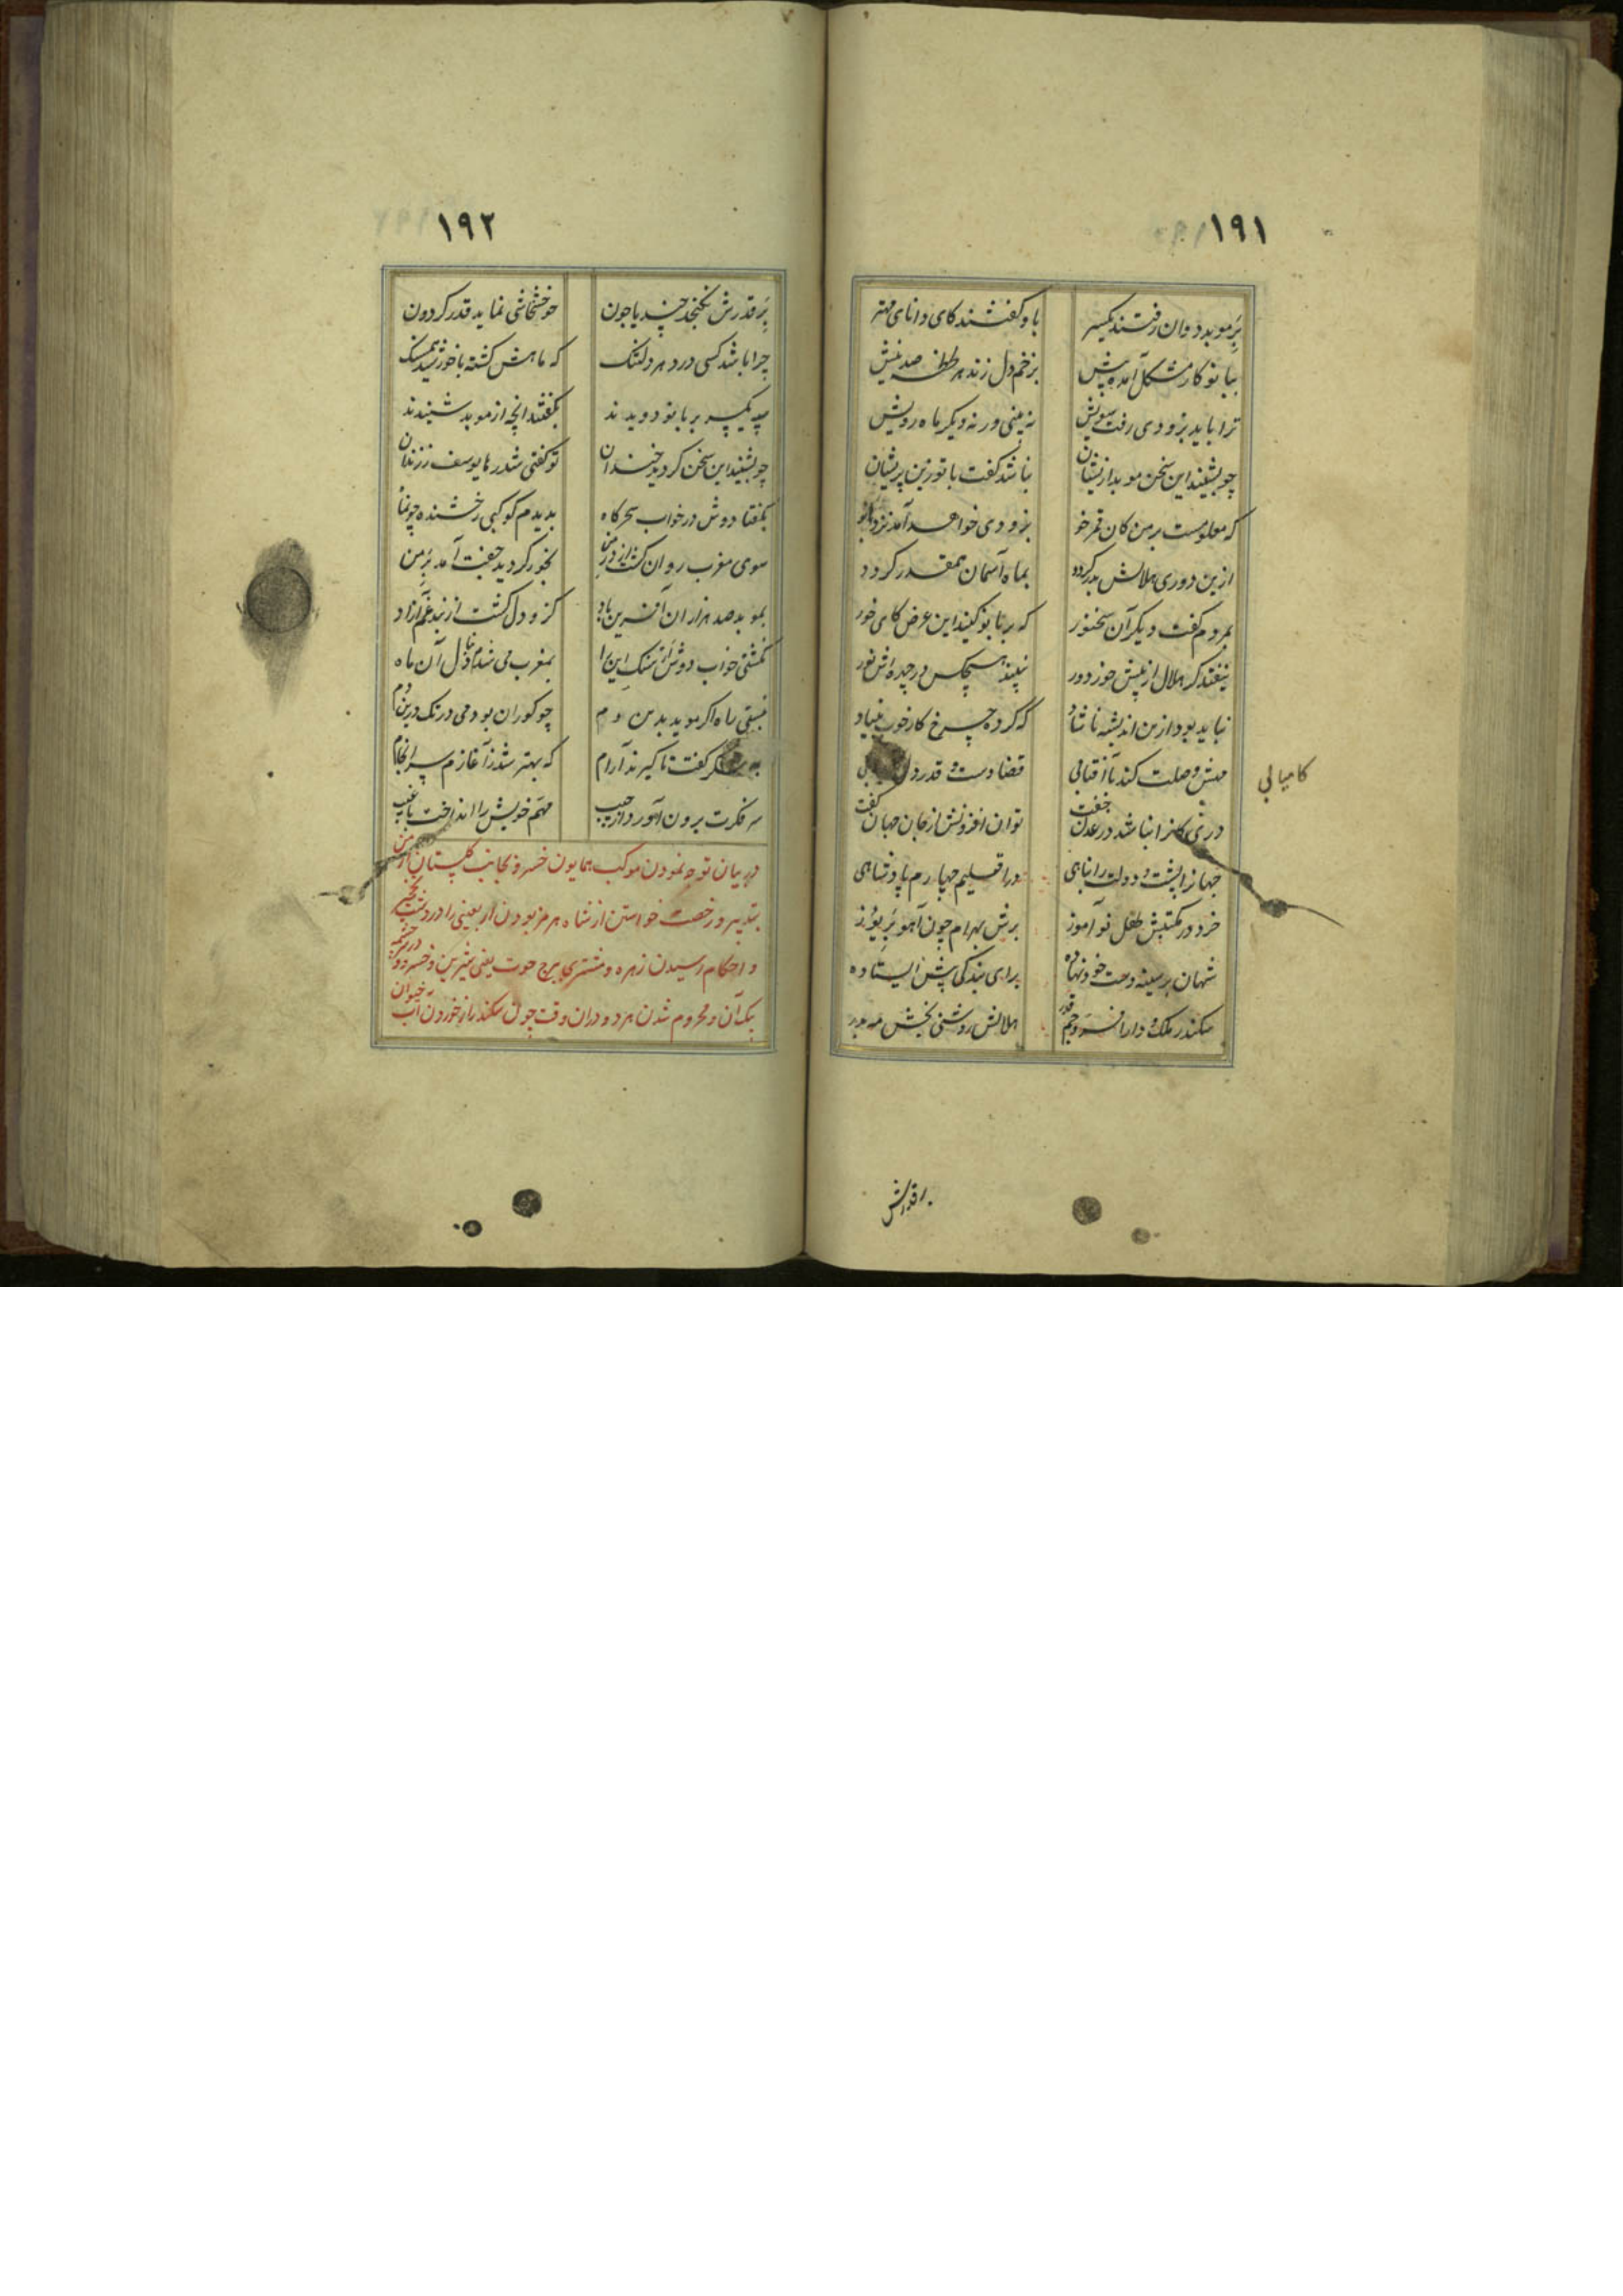 ۱۹۱
بر موبد دوان رفتند یکسر باو گفتند کای دانای مهتر
ببانو کار مشکل آمده پیش بزخم دل زند هر لحظه صد نیش
ترا باید بزودی رفت سویش نه بینی ورنه دیگر ماه رویش
چو بشنید این سخن موبد ازیشان نباشد گفت بانو زین پریشان
که معلومست بر من کان قمر خو بزودی خواهد آمد نزد بانو
ازین دوری هلالش بدر گردد بماه آسمان همقدر گردد
بمردم گفت دیگر آن سخنور که بر بانو کنید این عرض کای خور
نیفتد گر هلال از پیش خور دور نبیند هیچکس در چهره اش نور
نباید بود ازین اندیشه ناشاد که کرده چرخ کار خوب بنیاد
مهش وصلت کند با آفتابی قضا دست و قدر
کامیابی
دری کانرا نباشد در عدن جفت توان افزونش از جان جهان گفت
جهانرا پشت و دولت را پناهی در اقلیم چهارم پادشاهی
خرد در مکتبش طفل نو آموز برش بهرام چون آهو بر یوز
شهان بر سینه دست خود نهاده برای بندگی پیش ایستاده
سکندر ملک و دارا افسر و جم قدر هلالش روشنی بخش مه
بر قدرش
۱۹۲
بر قدرش نگنجد چند یا چون چو خشخاشی نماید قدر گردون
چرا باشد کسی در دهر دلتنگ که ماهش گشته با خورشید همسنگ
همه یکسر بر بانو دویدند بگفتند انچه از موبد شنیدند
چو بشنید این سخن گردید خندان تو گفتی شد رها یوسف ز زندان
بگفتا دوش در خواب سحرگاه بدیدم کوکبی رخشنده چون ماه
سوی مغرب روان گشت از در من بخور گردید جفت آمد بر من
بموبد صد هزاران آفرین باد کزو دل گشت از بند غم آزاد
نگشتی خواب دوش ار سنگ این راه بمغرب می شدم دنبال آن ماه
نبستی راه اگر موبد بدین دم چو کوران بودمی در تک درین دم
گفت تا گیرند آرام که بهتر شد ز آغازم سرانجام
سر فکرت برون آورد از جیب مهم خویش را انداخت با غیب
در بیان توجه نمودن موکب همایون خسرو بجانب گلستان ارمن
بتدبیر و رخصت خواستن از شاه هرمز بودن اربعینی را در دشت نخجیر
و احکام رسیدن زهره و مشتری ببرج حوت یعنی شیرین و خسرو در چشمه
یک آن و محروم شدن هر دو دران وقت چون سکندر از خوردن آب حیوان